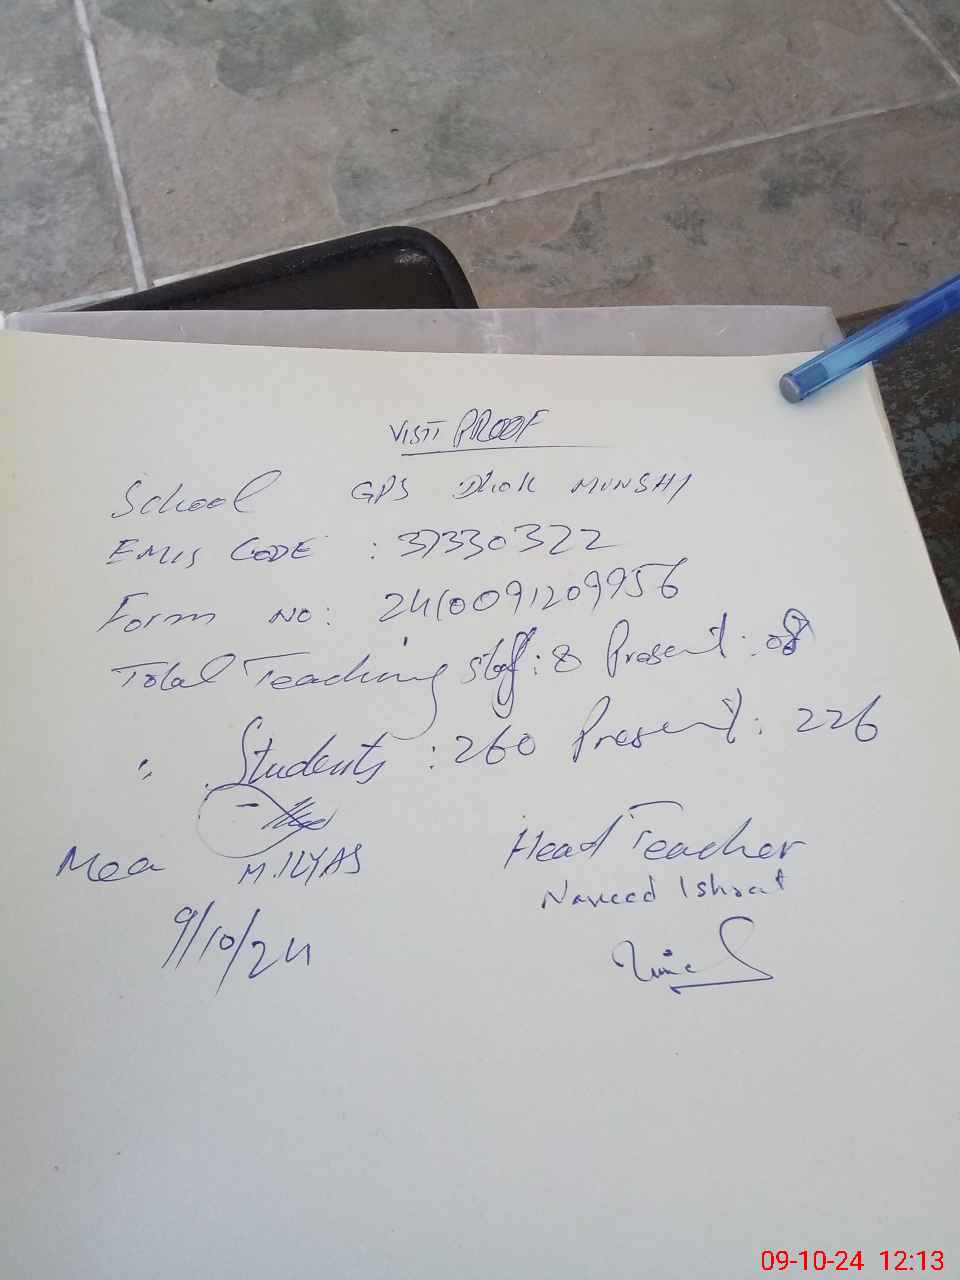 VISIT PROOF
School GPS Dhok MUNSHI
EMIS CODE : 37330322
Form NO: 2410091209956
Total Teaching Staff: 8 Present: 08
" Students : 260 Present: 226
Mea M.ILYAS
Head Teacher
Naveed Ishrat
9/10/24
09-10-24 12:13